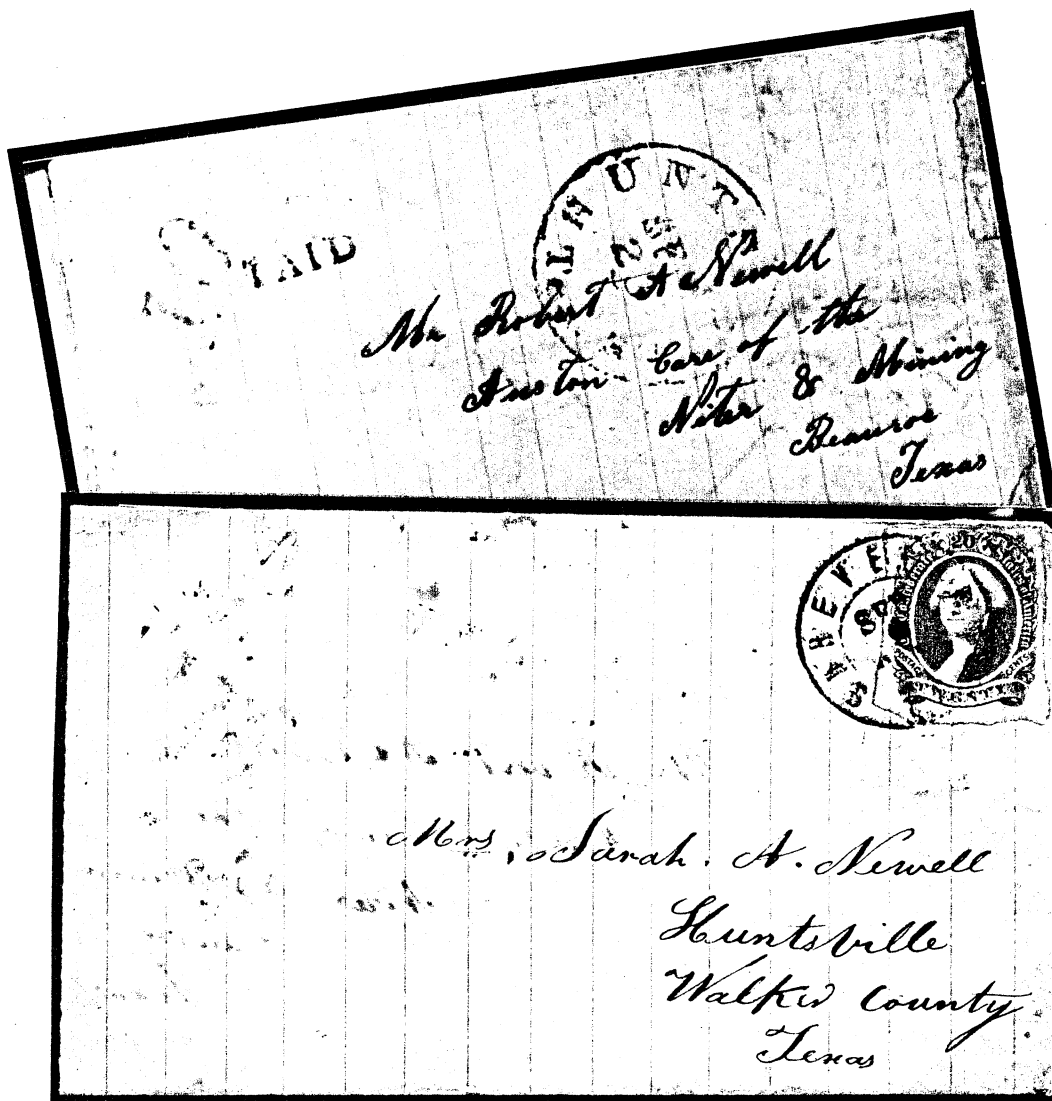 PAID
HUNT
Mr Robert A Newell
Auston Care of the
Niter & Mining
Beauroe
Texas
SHREVE
20
TWENTY
Mrs, Sarah. A. Newell
Huntsville
Walker County
Texas